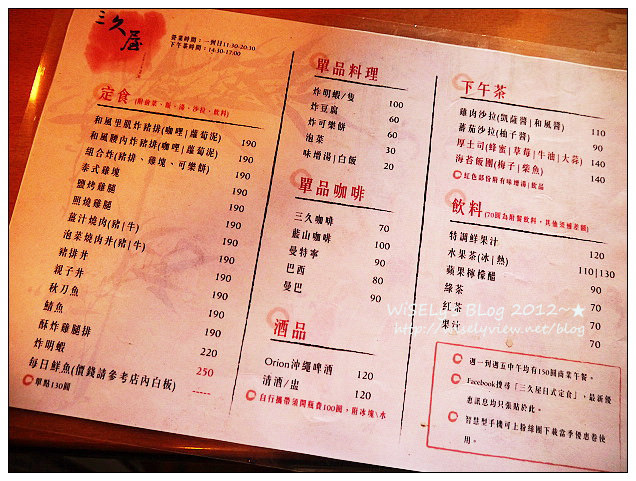 三久屋
營業時間：一到日11:30-20:30
下午茶時間：14:30-17:00
定食(附前菜、飯、湯、沙拉、飲料)
和風里肌炸豬排(咖哩|蘿蔔泥) 190
和風腰內炸豬排(咖哩|蘿蔔泥) 190
組合炸(豬排、雞塊、可樂餅) 190
泰式雞塊 190
鹽烤雞腿 190
照燒雞腿 190
薑汁燒肉(豬|牛) 190
泡菜燒肉丼(豬|牛) 190
豬排丼 190
親子丼 190
秋刀魚 190
鯖魚 190
酥炸雞腿排 190
炸明蝦 220
每日鮮魚(價錢請參考店內白板) 250
單點130圓 -----
單品料理
炸明蝦/隻 100
炸豆腐 60
炸可樂餅 60
泡菜 30
味增湯|白飯 20
單品咖啡
三久咖啡 70
藍山咖啡 100
曼特寧 90
巴西 80
曼巴 90
酒品
Orion沖繩啤酒 120
清酒/盅 120
自行攜帶須開瓶費100圓，附冰塊\水
下午茶
雞肉沙拉(凱薩醬|和風醬) 110
蕃茄沙拉(柚子醬) 90
厚土司(蜂蜜|草莓|牛油|大蒜) 140
海苔飯糰(梅子|柴魚) 140
紅色部份附有味增湯|飲品
飲料(70圓為附餐飲料，其他須補差額)
特調鮮果汁 120
水果茶(冰|熱) 110|130
蘋果檸檬醋 90
綠茶 70
紅茶 70
果汁 70
週一到週五中午均有150圓商業午餐。
Facebook搜尋「三久屋日式定食」，最新優
惠訊息均只張貼於此。
智慧型手機可上粉絲團下載當季優惠卷使
用。
WiSELy's Blog 2012~★
http://wiselyview.net/blog